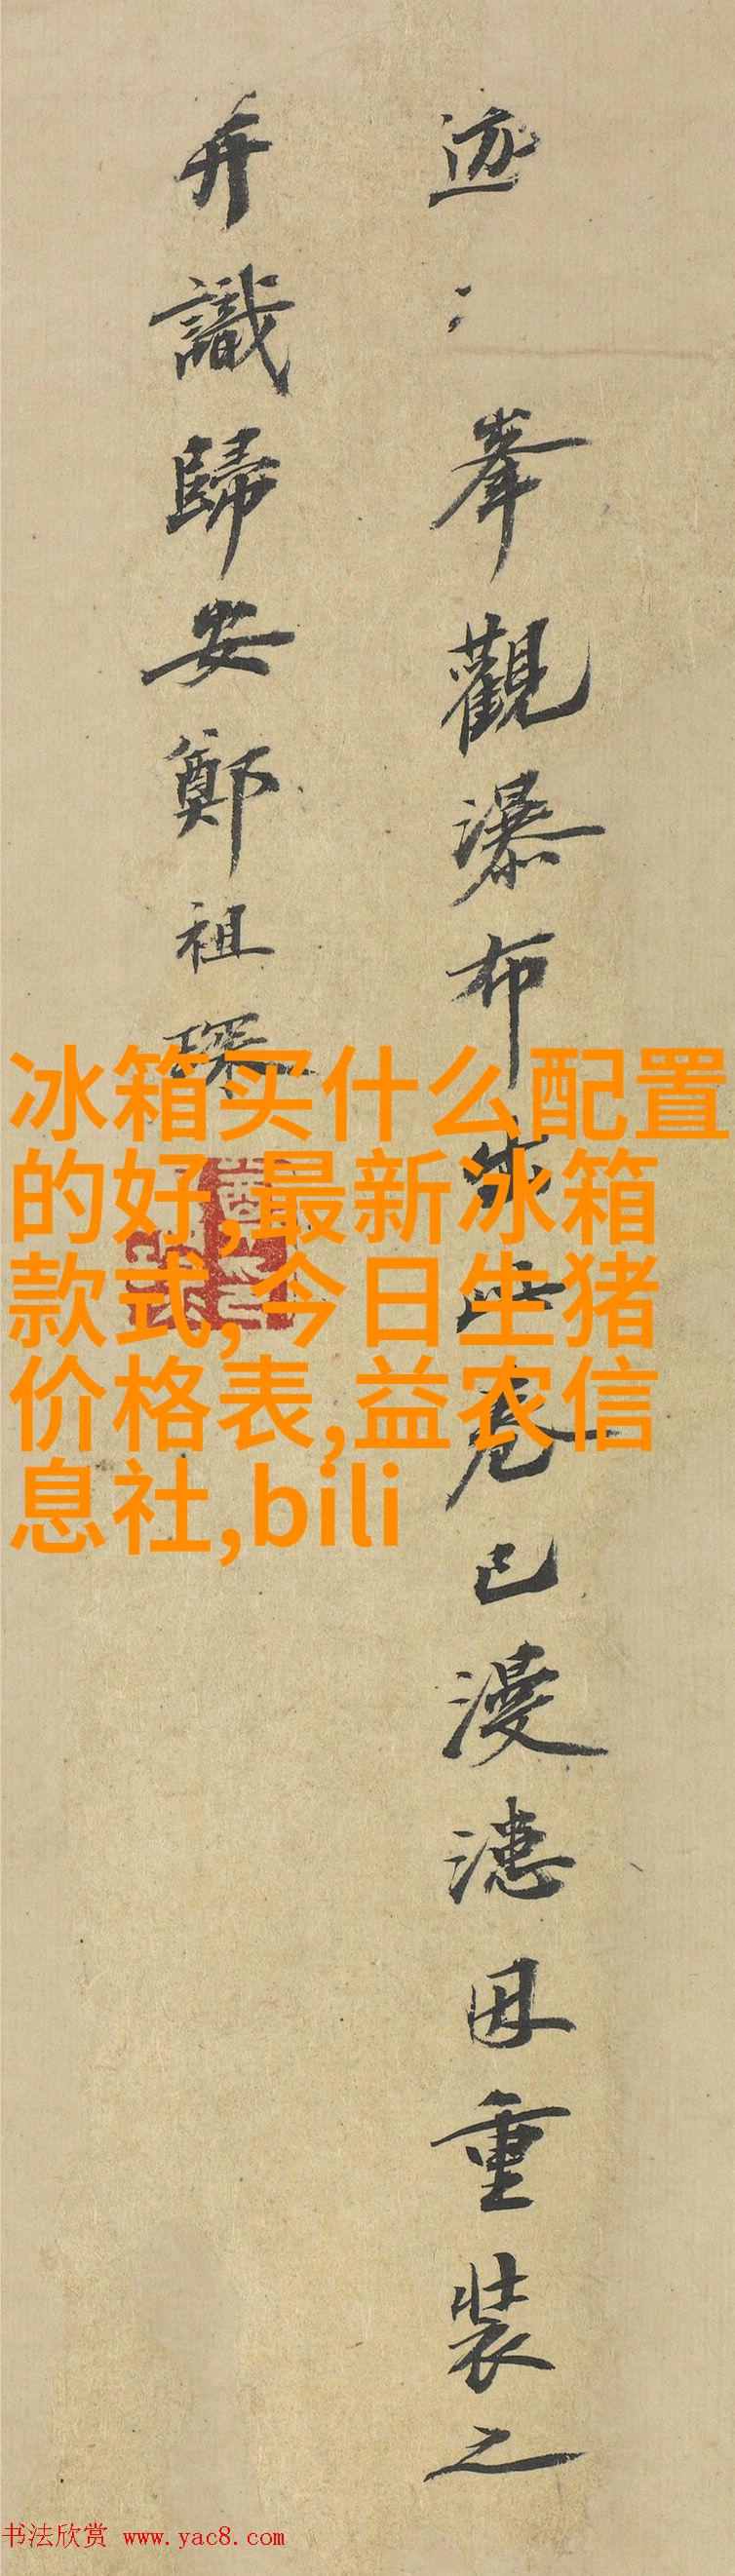 迹〻峯觀瀑布失此卷已漫漶因重裝之
并識歸安鄭祖琛
冰箱买什么配置
的好,最新冰箱
款式,今日生猪
价格表,益农信
息社,bili
书法欣赏 www.yac8.com